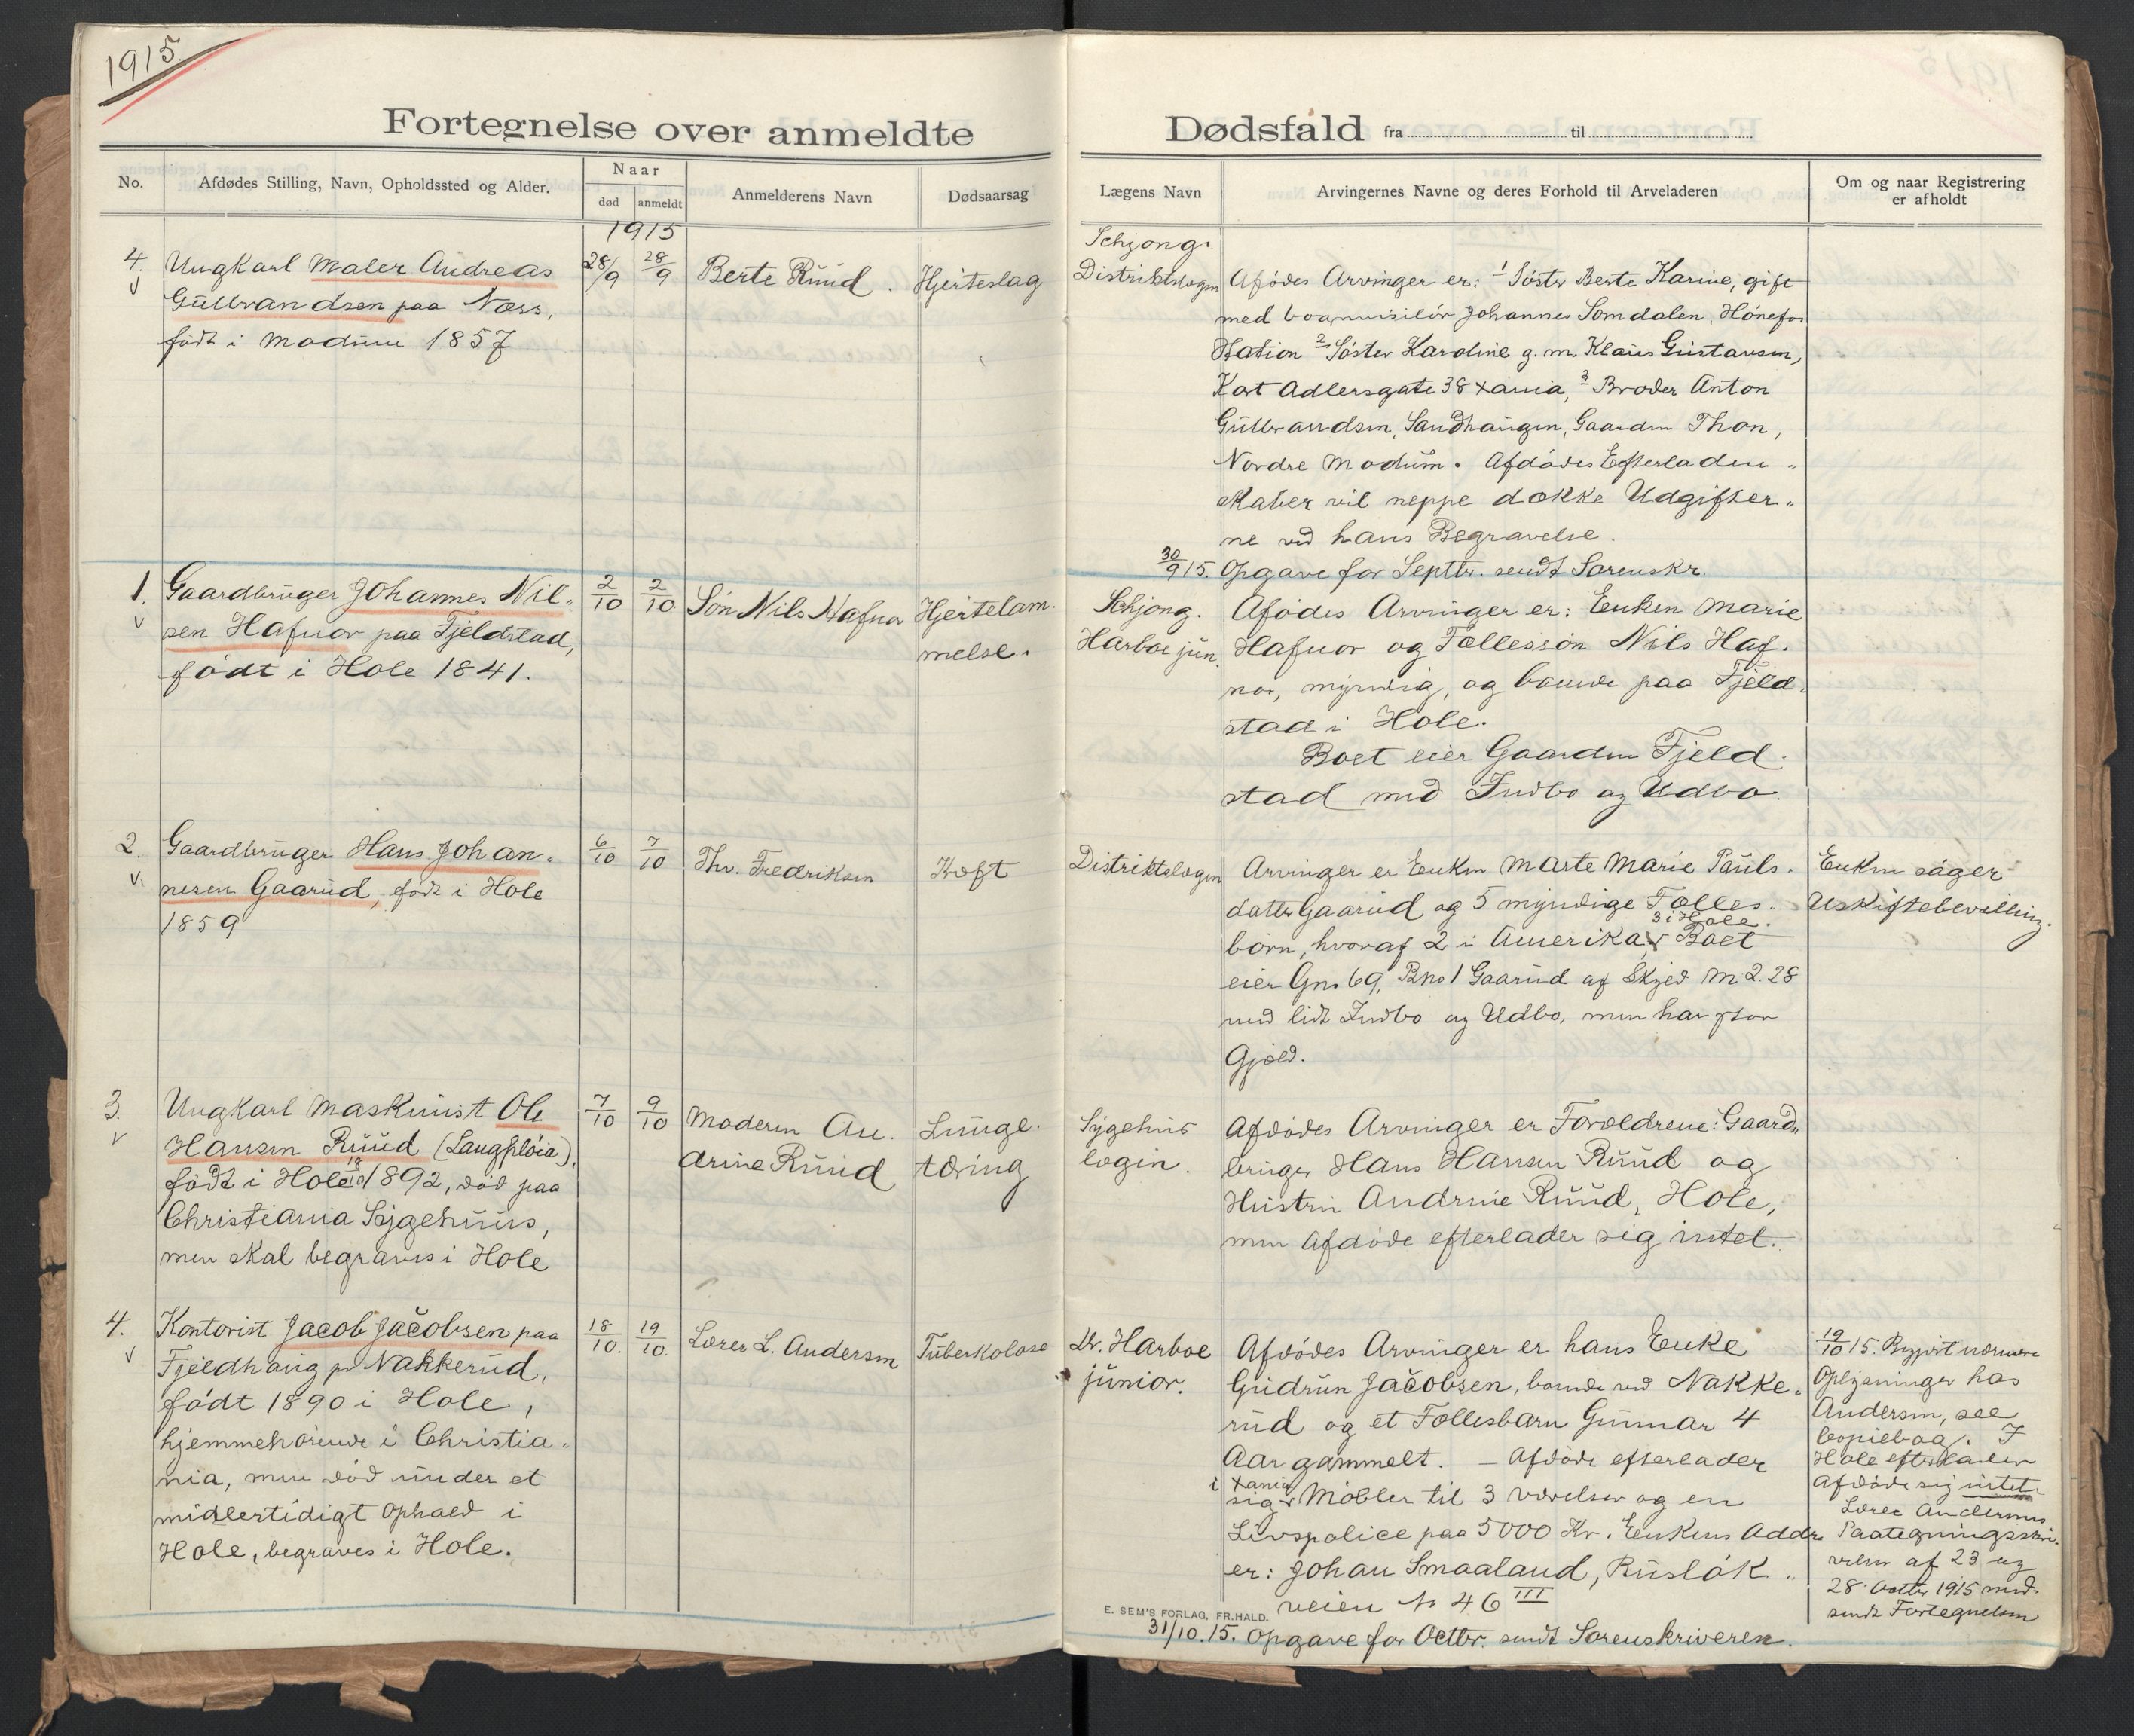 1915.
Fortegnelse over anmeldte Dødsfald fra til
No.
Afdødes Stilling, Navn, Opholdssted og Alder.
Naar
død
anmeldt
Anmelderens Navn
Dødsaarsag
Lægens Navn
Arvingernes Navne og deres Forhold til Arveladeren
Om og naar Registrering
er afholdt
1915
4.
Ungkarl Maler Andreas
Gulbrandsen paa Næss,
født i Modum 1857
28/9
28/9
Berte Ruud.
Hjerteslag
Schjong.
Distriktslægen
Afødes Arvinger er: 1 Søster Berte Karine, gift
med Johannes Somdalen, Hønefos
Station 2 Søster Karoline g. m. Klaus Gustavsen,
Kort Adlersgate 38 Xania, 3 Broder Anton
Gulbrandsen, Sandhaugen, Gaarden Thon,
Nordre Modum. Afdødes Efterladen„
skaber vil neppe dække Udgifter„
ne ved hans Begravelse.
30/9 15. Opgave for Septbr. sendt Sorenskr.
1.
Gaardbruger Johannes Nil„
sen Hafnor paa Fjeldstad,
født i Hole 1841.
2/10
2/10
Søn Nils Hafnor
Hjertelam„
melse.
Schjong.
Harboe jun.
Afødes Arvinger er: Enken Marie
Hafnor og Fællessøn Nils Haf„
nor, myndig, og boende paa Fjeld„
stad i Hole.
Boet eier Gaarden Fjeld„
stad med Indbo og Udbo.
2.
Gaardbruger Hans Johan„
nesen Gaarud, født i Hole
1859
6/10
7/10
Thv. Fredriksen
Kræft
Distriktslægen
Arvinger er Enken Marte Marie Pauls„
datter Gaarud og 5 myndige Fælles„
børn, hvoraf 2 i Amerika, 3 i Hole. Boet
eier Gno 69, Bno 1 Gaarud af Skyld M 2.28
med lidt Indbo og Udbo, men har stor
Gjæld.
Enken søger
Uskiftebevilling.
3.
Ungkarl Maskinist Ole
Hansen Ruud (Laugpløia),
født i Hole 1892, død paa
Christiania Sygehuus,
men skal begraves i Hole
7/10
9/10
Moderen An„
drine Ruud
Lunge„
tæring
Sygehus
lægen.
Afdødes Arvinger er Forældrene: Gaard„
bruger Hans Hansen Ruud og
Hustru Andrine Ruud, Hole,
men Afdøde efterlader sig intet.
4.
Kontorist Jacob Jacobsen paa
Fjeldhaug pr Nakkerud,
født 1890 i Hole,
hjemmehørende i Christia„
nia, men død under et
midlertidigt Ophold i
Hole, begraves i Hole.
18/10.
19/10.
Lærer L. Andersen
Tuberkolose
Dr. Harboe
junior.
Afdødes Arvinger er hans Enke
Gudrun Jacobsen, boende ved Nakke„
rud og et Fællesbarn Gunnar 4
Aar gammelt. – Afdøde efterlader
sig i Xania Møbler til 3 Værelser og en
Livspolice paa 5000 Kr. Enkens Addr
er: Johan Smaaland, Rusløk„
veien No 46 III
19/10 15. nærmere
Oplysninger hos
Andersen, see
Copiebog. I
Hole efterlader
afdøde sig intet.
Lærer Andersens
Paategningsskri„
velse af 23 og
28 Octbr 1915 med„
sendt Fortegnelsen
E. SEM'S FORLAG, FR.HALD.
31/10.15. Opgave for Octbr. sendt Sorenskriveren.